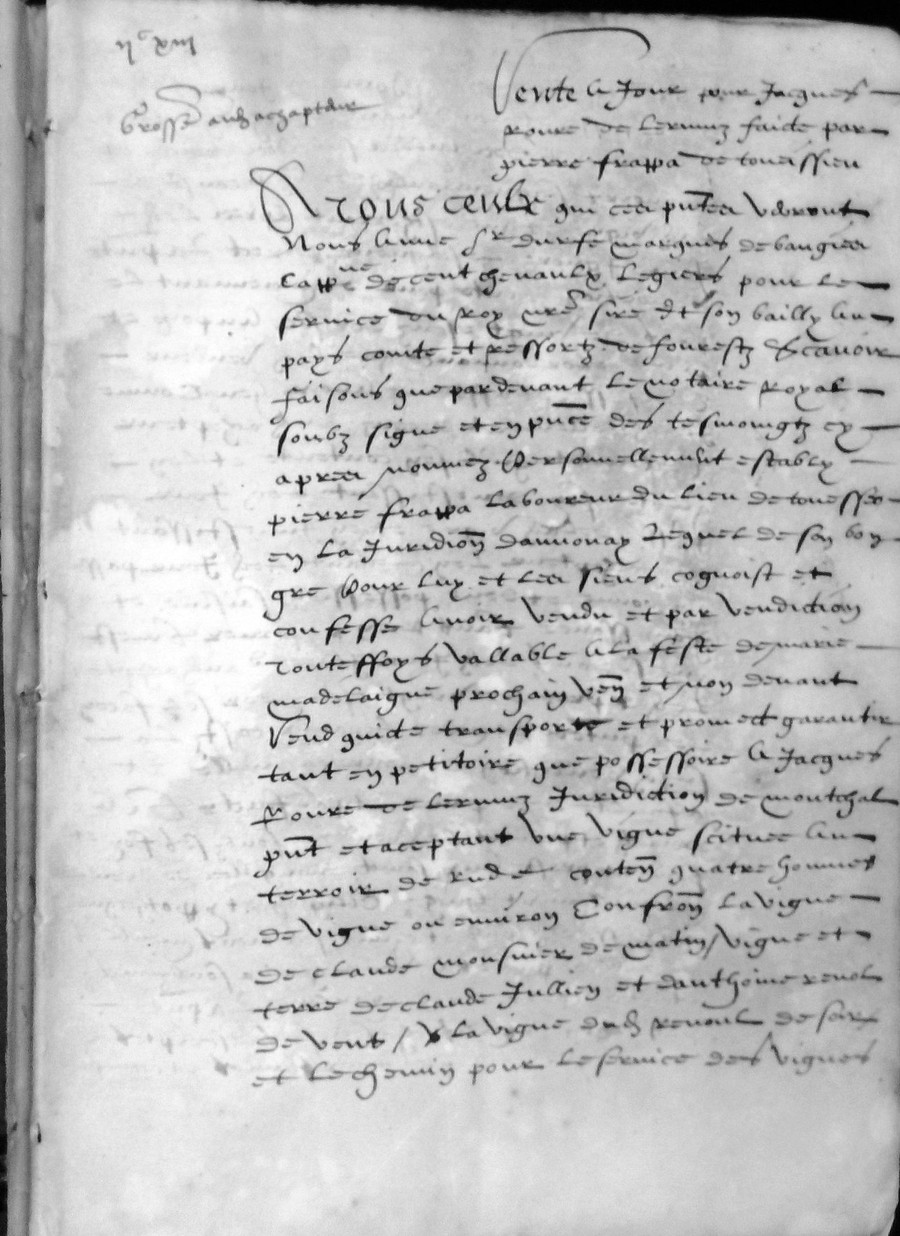 ii^c xiii
Grosse aud achapteur
Vente A Jour pour Jacques
roure de lermuz faicte par
pierre frappa de toueissieu
A Tous ceulx qui ces pñtes verront
Nous Anne Sr durfe marquis de baugies
cappne de cent chevaulx legiers pour le
service du roy nre sire et son bailly Au
pays comte et ressortz de fourestz Scavoir
faisons que pardevant le notaire royal
soubz signe et en pñce des tesmoingtz cy
apres nommez Personnellemēt estably
pierre frappa laboureur du lieu de
en la Juridiōn dannonay Lequel de son bon
gre Pour luy et les siens cognoist et
confesse Avoir vendu et par vendiction
touteffoys vallable A la feste de marie
madelaigne prochain veñ et non devant
Vend quicte transporte et promect garantir
tant en petitoire que possessoire A Jacques
Roure de lermuz Juridiction de montchal
pñt et aceptant une vigne scituee Au
terroir de conteñ quatre hommes
de vigne ou environ Confroñ la vigne
de claude monsnier de matin / vigne et
terre de claude Jullien et danthoine renol
de vent / la vigne dud renoul de soir
et le chemin pour le service des vignes